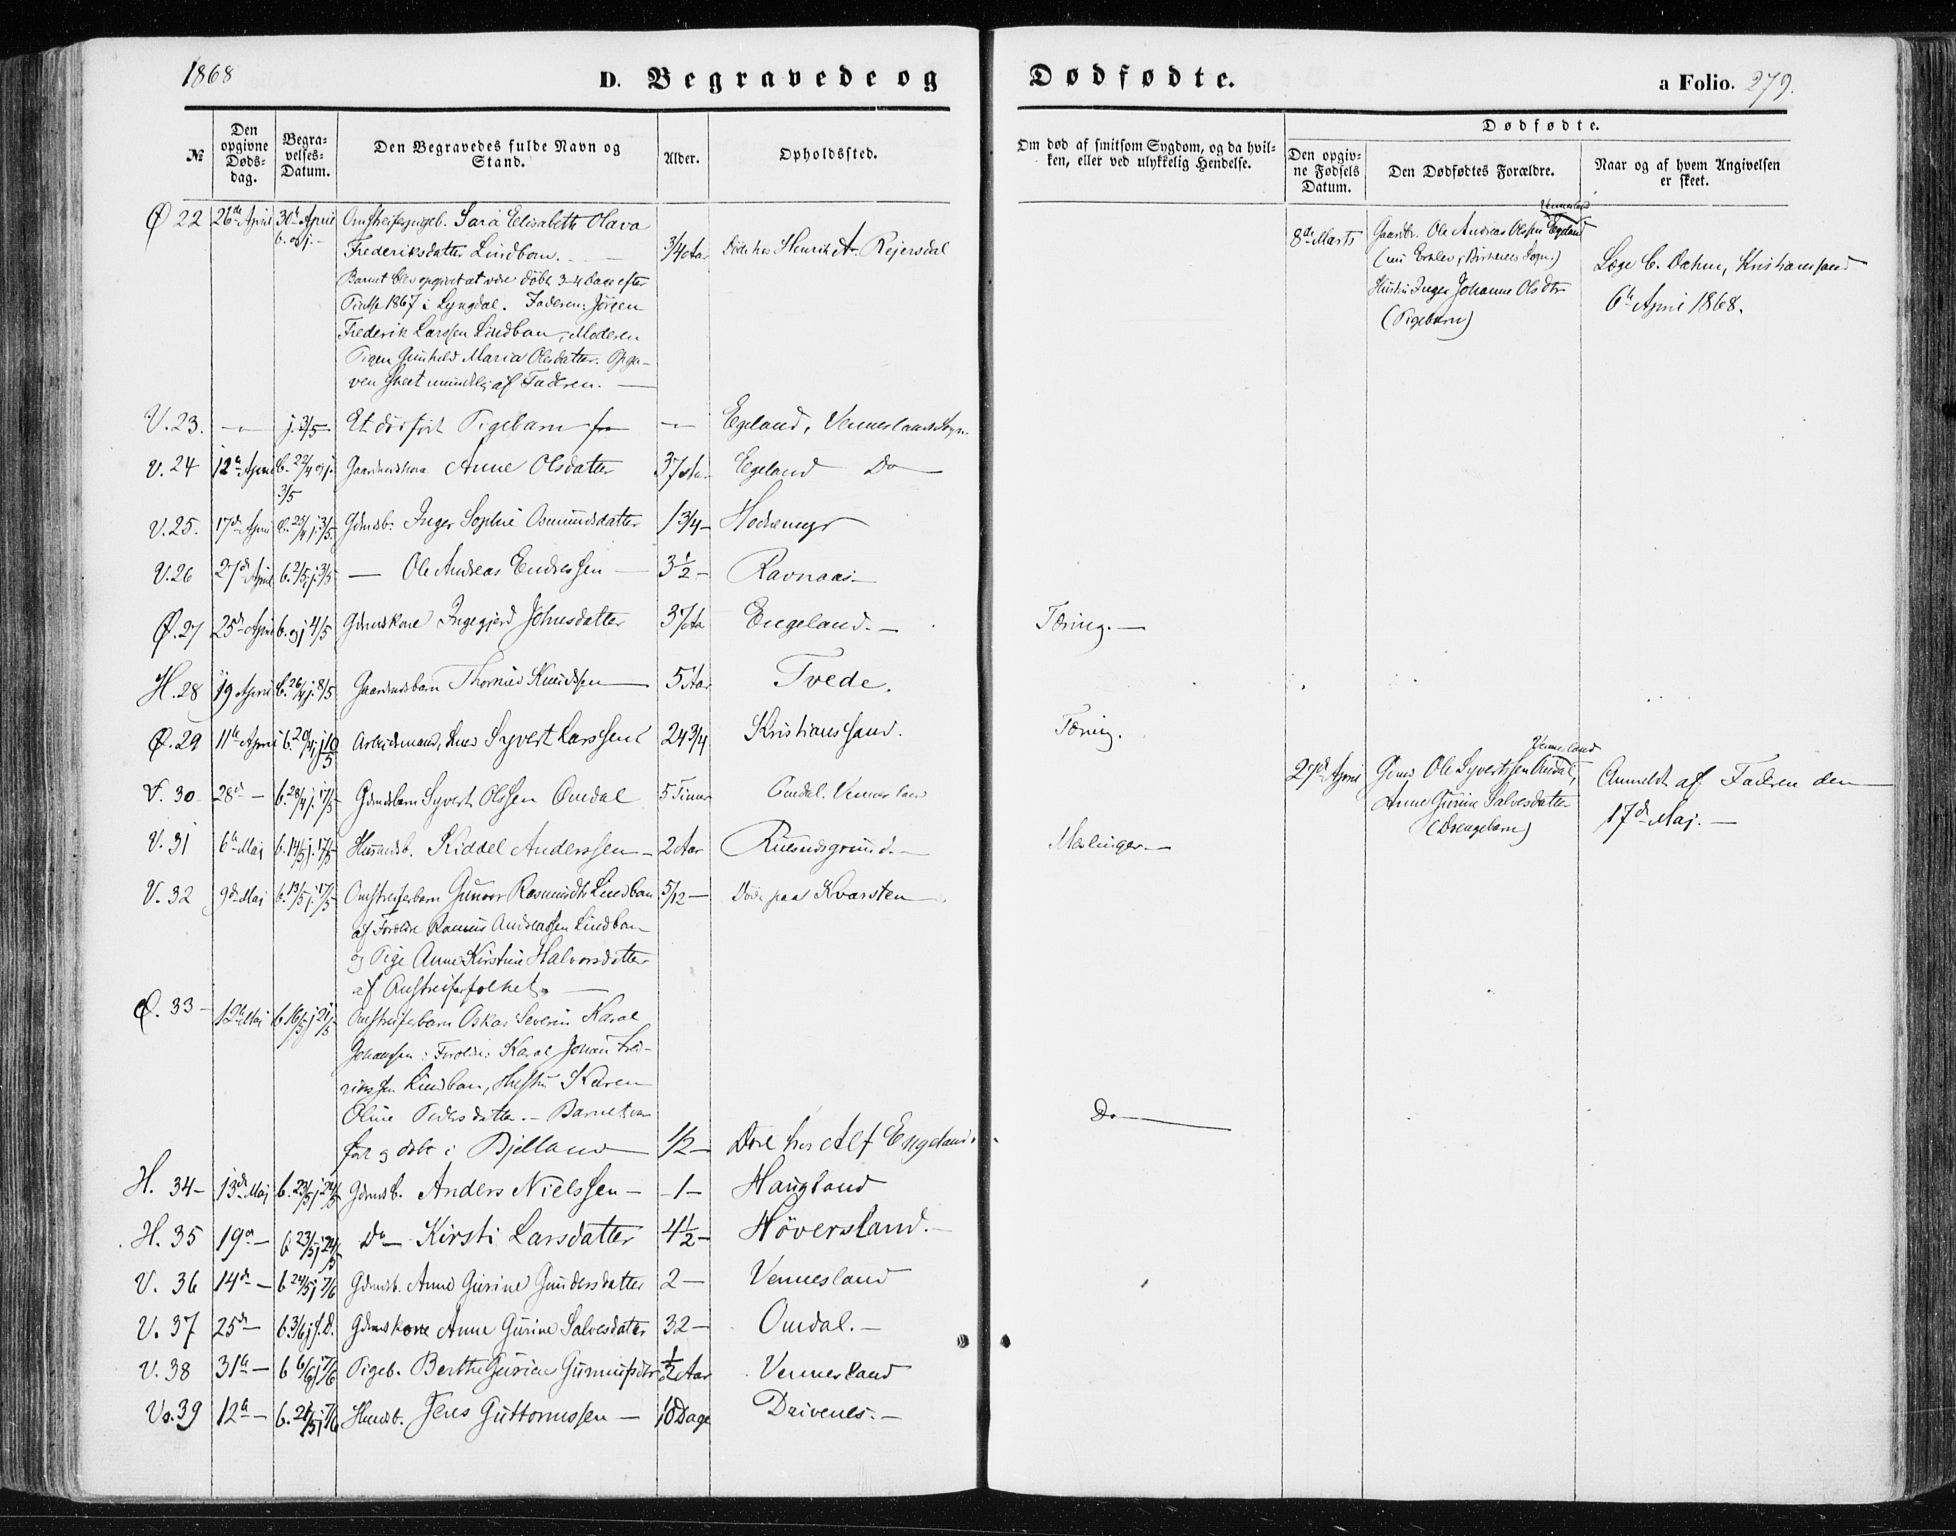 1868
D. Begravede og Dødfødte.
a Folio. 279.
№
Den opgivne Døds-dag.
Begra-velses-Datum.
Den Begravedes fulde Navn og Stand.
Alder.
Opholdssted.
Om død af smitsom Sygdom, og da hvil-
ken, eller ved ulykkelig Hendelse.
Dødfødte.
Den opgiv-ne Fødsels Datum.
Den Dødfødtes Forældre.
Naar og af hvem Angivelsen er skeet.
Ø 22 26de April 30te April Sara Elisabeth Olava
b. og j.
Frederiksdatter Lindbom. 3/4 Aar Døde hos Henrik A. Rejersdal
Barnet blev opgivet at være døbt 3-4 Dage efter
1867 i Lyngdal. Faderen: Jörgen
Frederik Larssen Lindban, Moderen
Pigen Gunhild Maria Olsdatter. Opga-
ven skeet mundtlig af Faderen.
Vennesland
8de Marts Gaardbr. Ole Andreas Olsen Egeland
Hustru Inger Johanne Olsdtr
(Pigebarn)
Læge C. Dahm, Kristianssand
6te April 1868.
V. 23. — j. 3/5 Et dødfødt Pigebarn — Egeland, Venneslands Sogn
V. 24 12te April b. 22/4 og j. 3/5 Gaardmandskone Anne Olsdatter 37 Aar Egeland Do
V. 25. 17de April b. 25/4 j. 3/5 Gdmdsb. Inger Sophie Osmundsdatter 1 3/4 — Hodnemyr
V. 26 27de April b. 2/5 j. 3/5 — Ole Andreas Endressen — 3 1/2 — Ravnaas —
Ø. 27 25de April b. og j. 4/5 Gdmdskone Ingegjerd Johnsdatter 37 Aar Engeland. — Tæring. —
H. 28 19 April b. 26/4 j. 8/5 Gaardmdsbarn Knudssen 5 Aar Tvede.
Ø. 29 11te April b. 20/4 j. 10/5 Arbeidsmand, Syvert Larssen 24 3/4 Kristianssand. Tæring.
V. 30 28de — b. 28/4 j. 17/5 Gdmdsbarn Syvert Olssen Omdal 5 Timer Omdal. Vennesland
Vennesland
27de April Gdmd Ole Syvertssen Omdal,
Anne Gurine Salvesdatter
(Drengebarn)
Anmeldt af Faderen den
17de Maj. —
V. 31 6te Maj b. 14/5 j. 17/5 Husmdsb. Kiddel Anderssen — 2 Aar — Meslinger. —
V. 32 9de Maj b. 13/5 j. 17/5 Omstreiferbarn Gunvor Rasmusdtr Lindban 5/12 — Døde paa Kvarsten
af Foreldre Rasmus Andreassen Lindban
og Pige Anne Kirstine Halvorsdatter
af Omstreiferfolket. —
Ø. 33 — 12te Maj b. 16/5 j. 21/5 Omstreiferbarn Oskar Severin Karal
Johanssen: Foreldre: Karal Johan Fred-
rikssen Lindban, Hustru Karen
Oline Pedersdatter. — Barnet var
født og døbt i Bjelland 1/2 — Døde hos Alf Engeland. Do
H. 34 — 13de Maj b. 23/5 j. 24/5 Gdmdsb. Anders Nielssen — 1 — Haugland
H. 35 19de — b. 23/5 j. 24/5 Do — Kirsti Larsdatter 4 1/2 — Höversland. —
V. 36 14de — b. 24/5 j. 7/6 Gdmdsb. Anne Gurine Gundersdatter 2 — Vennesland
V. 37 25de — b. 3/6 j. s. D. Gdmdskone Anne Gurine Salvesdatter 32 — Omdal. —
V. 38 31te — b. 6/6 j. 7/6 Pigeb. Berthe Gurine 1/2 Aar Vennesland
Vo. 39 12te — b. 21/5 j. 7/6 Husmdsb. Jens Guttormssen — 10 Dage Drivenes. —